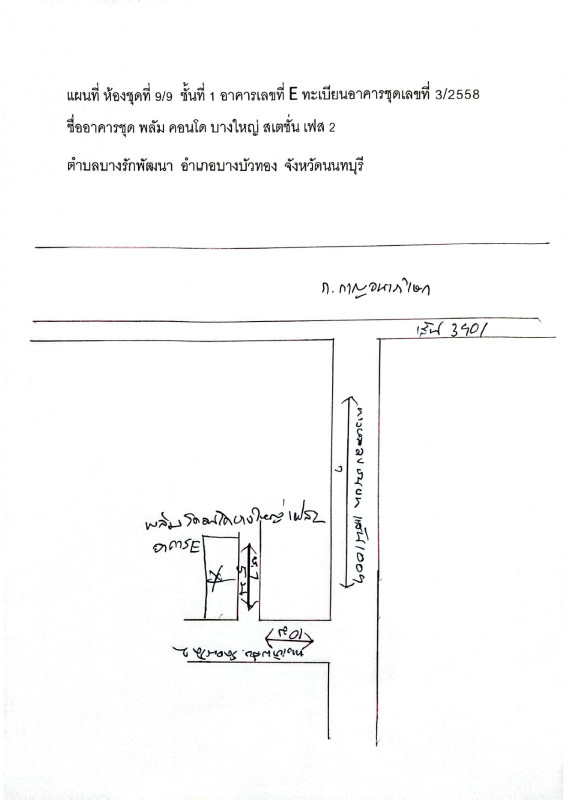 แผนที่ ห้องชุดที่ 9/9 ชั้นที่ 1 อาคารเลขที่ E ทะเบียนอาคารชุดเลขที่ 3/2558
ชื่ออาคารชุด พลัม คอนโด บางใหญ่ สเตชั่น เฟส 2
ตำบลบางรักพัฒนา อำเภอบางบัวทอง จังหวัดนนทบุรี
ถ. กาญจนาภิเษก
เส้น 3901
1009
พลัมคอนโดบางใหญ่ เฟส2
อาคาร E